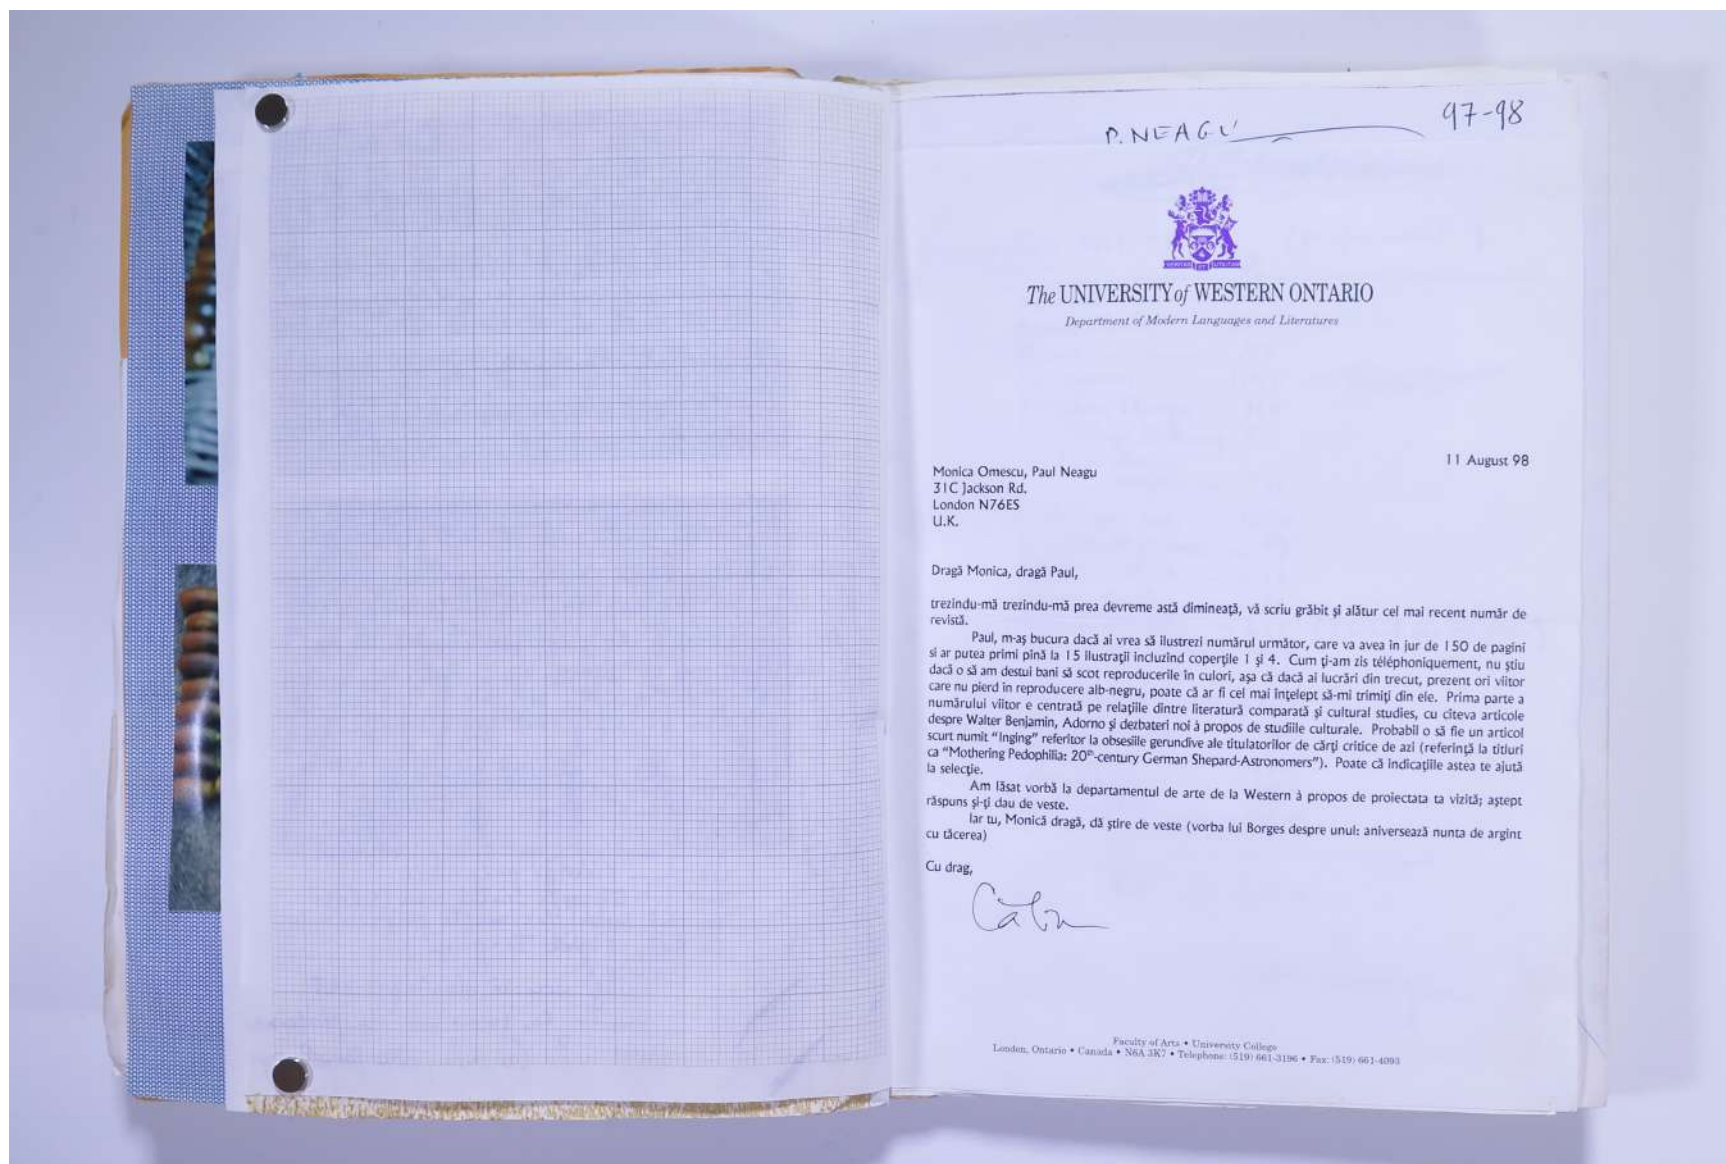 P. NEAGU
97-98
The UNIVERSITY of WESTERN ONTARIO
Department of Modern Languages and Literatures
11 August 98
Monica Omescu, Paul Neagu
31C Jackson Rd.
London N76ES
U.K.
Dragă Monica, dragă Paul,
trezindu-mă trezindu-mă prea devreme astă dimineaţă, vă scriu grăbit şi alătur cel mai recent număr de
revistă.
Paul, m-aş bucura dacă ai vrea să ilustrezi numărul următor, care va avea in jur de 150 de pagini
si ar putea primi pină la 15 ilustraţii incluzind coperţile 1 şi 4. Cum ţi-am zis téléphoniquement, nu ştiu
dacă o să am destui bani să scot reproducerile in culori, aşa că dacă ai lucrări din trecut, prezent ori viitor
care nu pierd in reproducere alb-negru, poate că ar fi cel mai inţelept să-mi trimiţi din ele. Prima parte a
numărului viitor e centrată pe relaţiile dintre literatură comparată şi cultural studies, cu citeva articole
despre Walter Benjamin, Adorno şi dezbateri noi à propos de studiile culturale. Probabil o să fie un articol
scurt numit "Inging" referitor la obsesiile gerundive ale titulatorilor de cărţi critice de azi (referinţă la titluri
ca "Mothering Pedophilia: 20th-century German Shepard-Astronomers"). Poate că indicaţiile astea te ajută
la selecţie.
Am lăsat vorbă la departamentul de arte de la Western à propos de proiectata ta vizită; aştept
răspuns şi-ţi dau de veste.
Iar tu, Monică dragă, dă ştire de veste (vorba lui Borges despre unul: aniversează nunta de argint
cu tăcerea)
Cu drag,
Călin
Faculty of Arts • University College
London, Ontario • Canada • N6A 3K7 • Telephone: (519) 661-3196 • Fax: (519) 661-4093